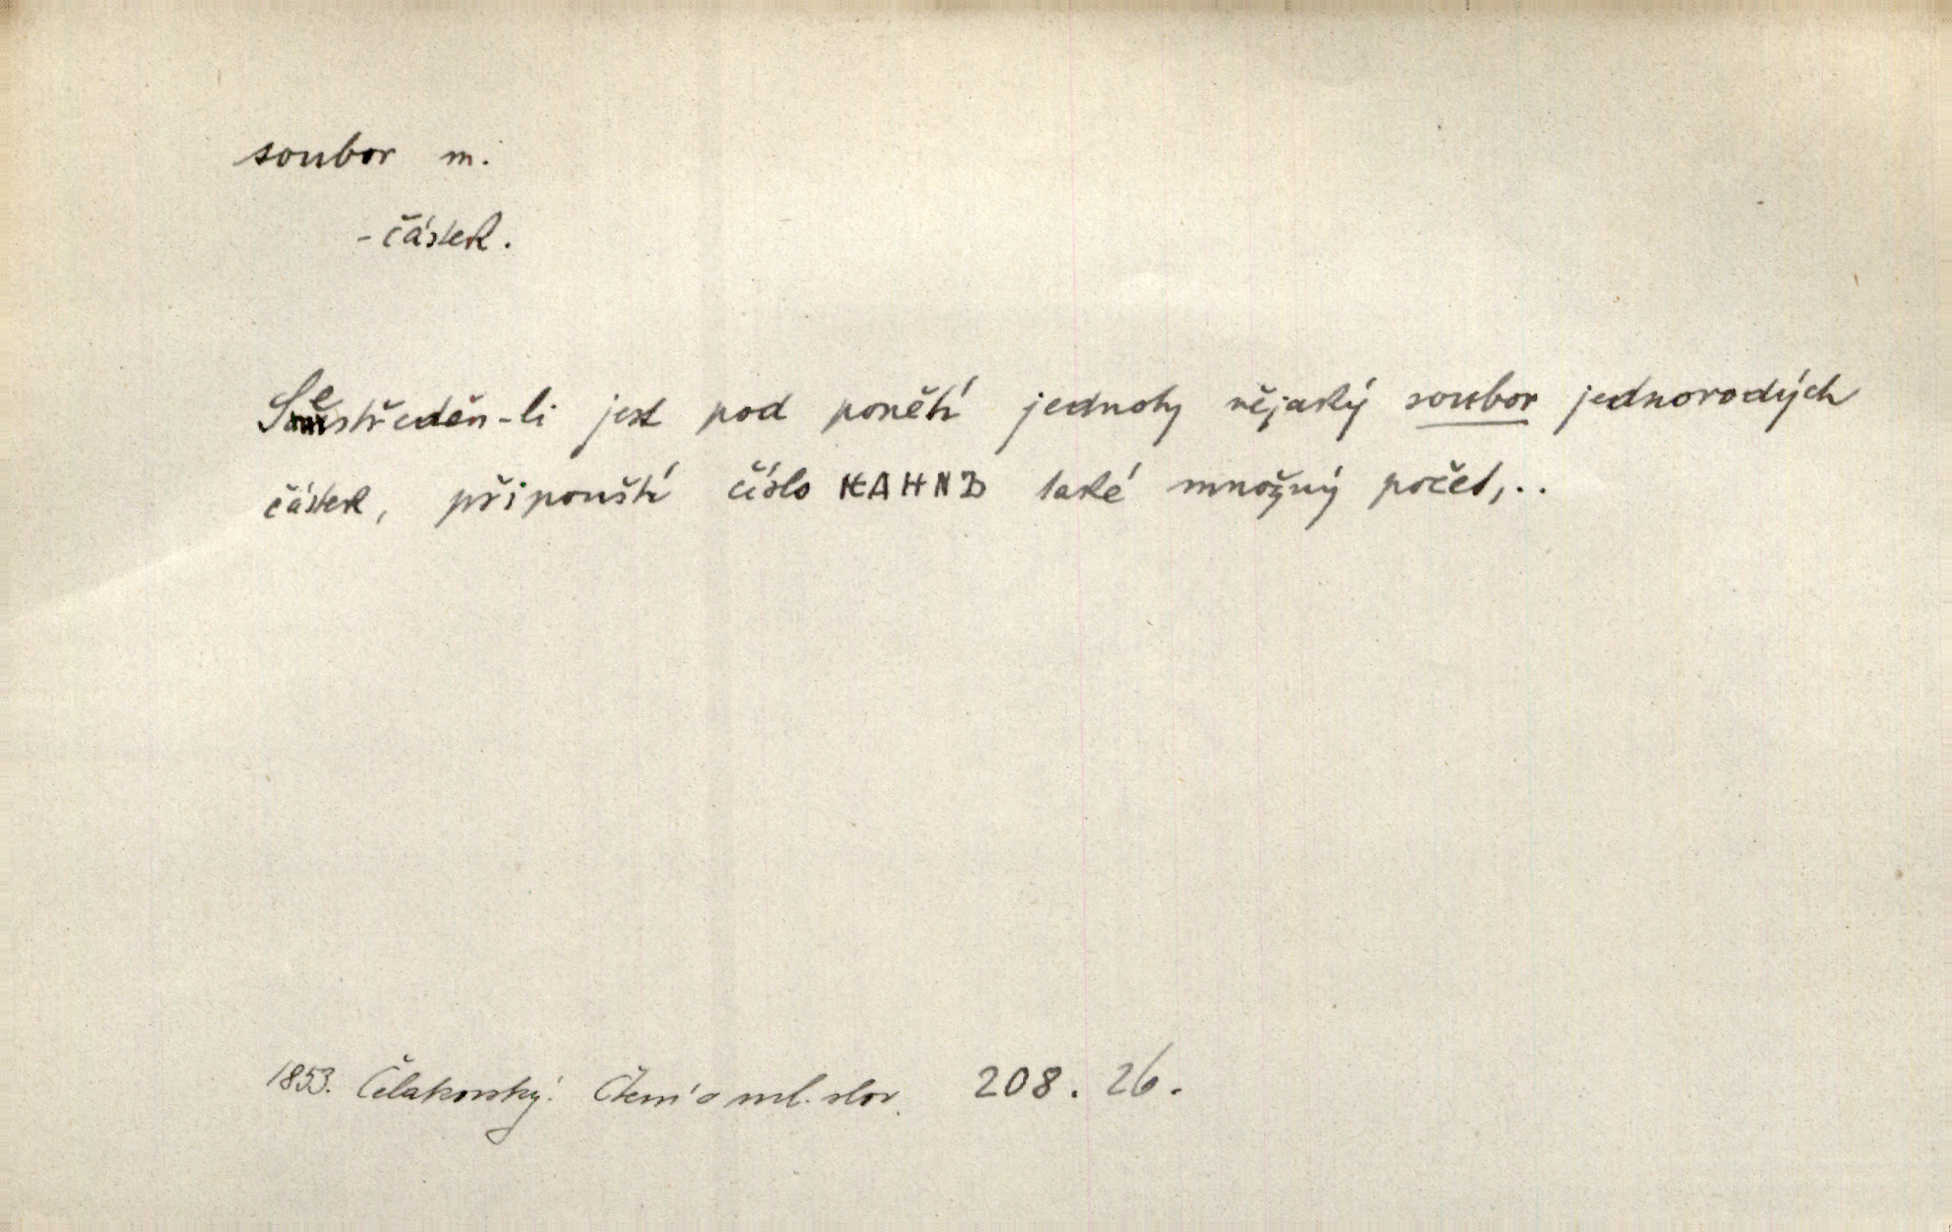 soubor m.
- částek.
Sestředěn-li jest pod ponětí jednoty nějaký soubor jednorodých
částek, připouští číslo также množný počet,..
1853. Čelakovský: Čtení o ml. slov. 208. 26.